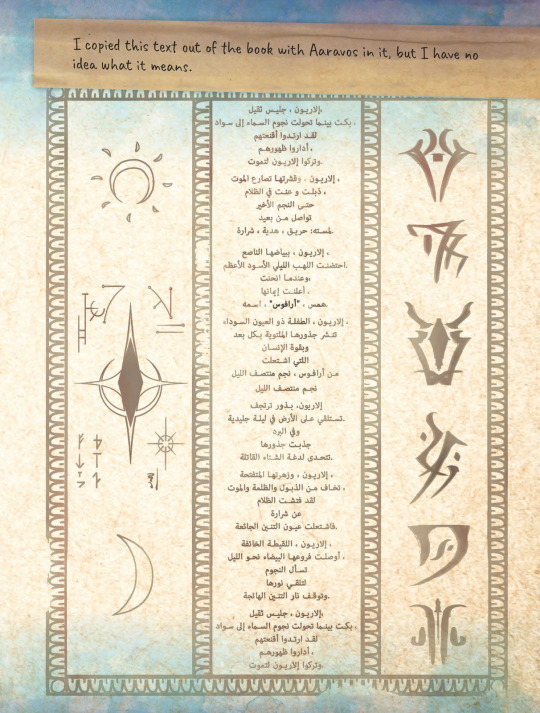 I copied this text out of the book with Aaravos in it, but I have no
idea what it means.
إلاريون ، جليس ثقيل،
بكت بينما تحولت نجوم السماء إلى سواد ،
لقد ارتدوا أقنعتهم
أداروا ظهورهم ،
وتركوا إلاريون لتموت.
إلاريون ، وقشرتها تصارع الموت ،
ذبلت و عنت في الظلام ،
حتى النجم الأخير
تواصل من بعيد
لمسته: حريق ، هدية ، شرارة.
إلاريون ، ببياضها الناصع ،
احتضنت اللهب الليلي الأسود الأعظم.
وعندما انحنت،
أعلنت إيمانها ،
همس ، "أرافوس" ، اسمه.
إلاريون ، الطفلة ذو العيون السوداء ،
تنشر جذورها الملتوية بكل بعد
وبقوة الإنسان
اللتي اشتعلت
من أرافوس ، نجم منتصف الليل
نجم منتصف الليل
إلاريون، بذور ترتجف
تستلقي على الأرض في ليلة جليدية.
وفي البرد
جذبت جذورها
تتحدى لدغة الشتاء القاتلة.
إلاريون ، وزهرتها المتفتحة ،
تخاف من الذبول والظلمة والموت ،
لقد فتشت الظلام
عن شرارة
فاشتعلت عيون التنين الجائعة.
إلاريون ، اللقيطة الخائفة ،
أوصلت فروعها البيضاء نحو الليل ،
تسأل النجوم
لتلقي نورها
وتوقف نار التنين الهائجة.
إلاريون ، جليس ثقيل،
بكت بينما تحولت نجوم السماء إلى سواد ،
لقد ارتدوا أقنعتهم
أداروا ظهورهم ،
وتركوا إلاريون لتموت